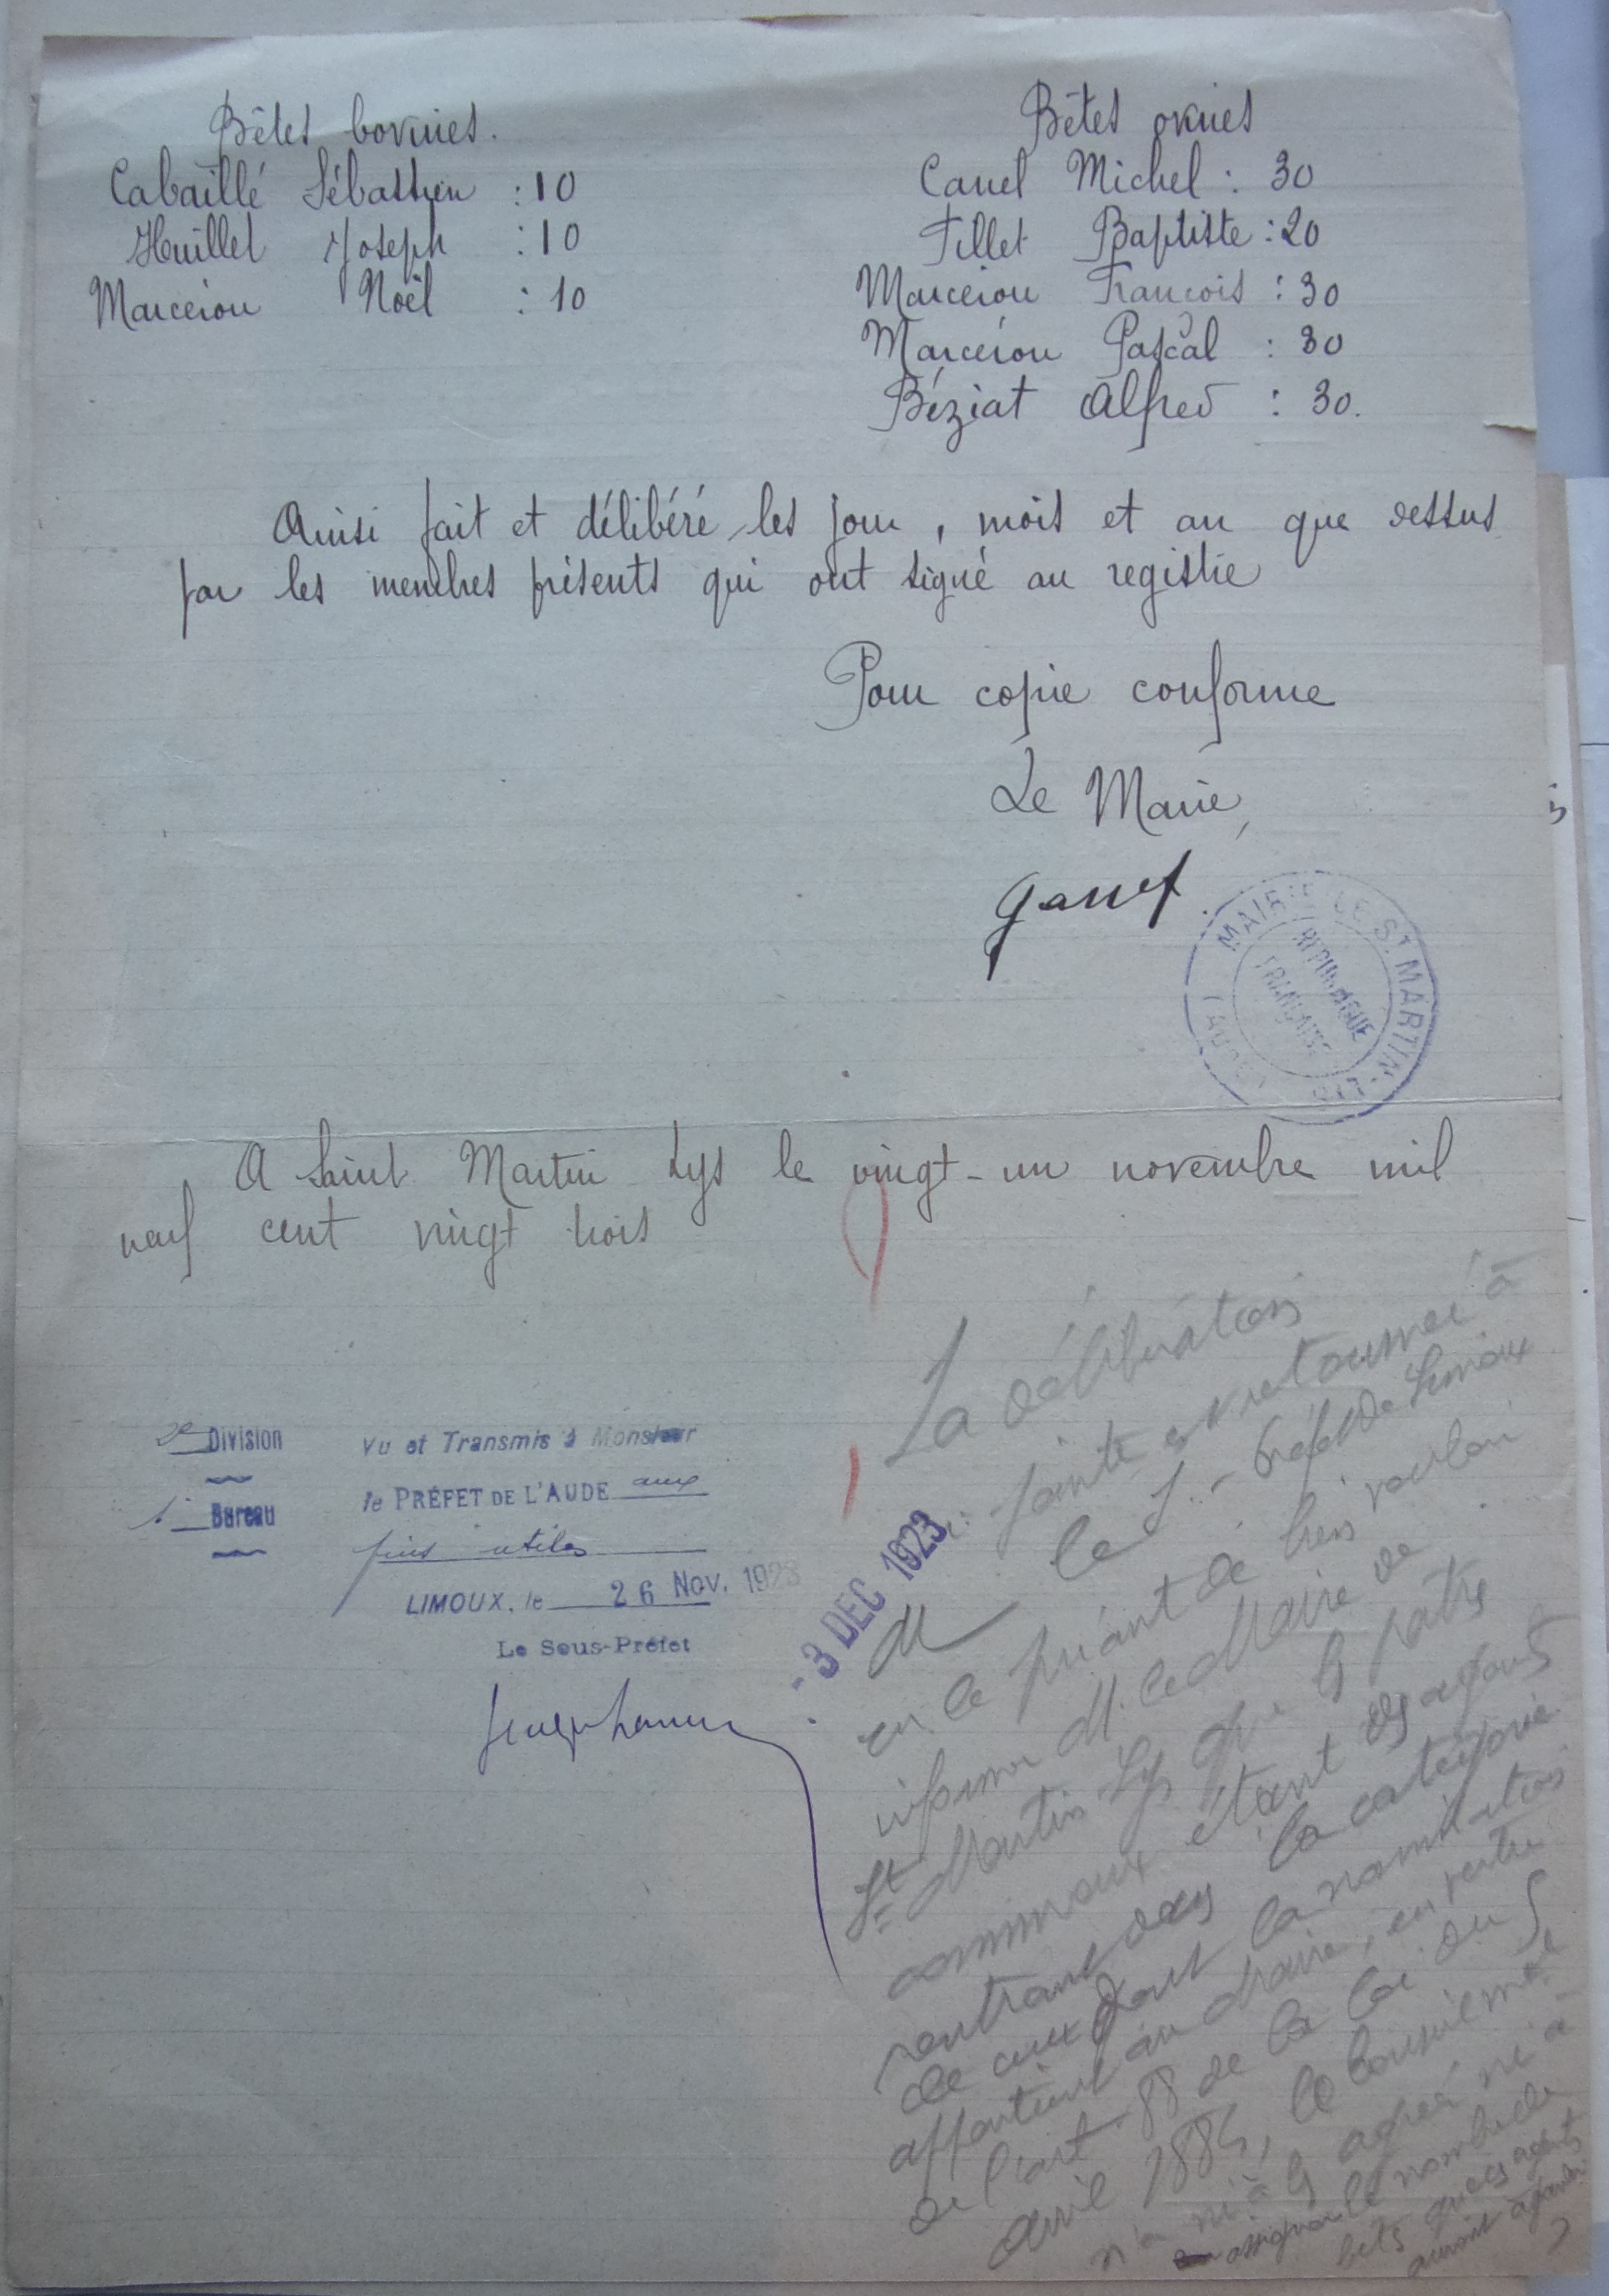 Bêtes bovines.
Cabaillé Sébastien : 10
Huillet Joseph : 10
Marcerou Noël : 10
Bêtes ovines
Canel Michel : 30
Tillet Baptiste : 20
Marcerou François : 30
Marcerou Pascal : 30
Béziat Alfred : 30.
Ainsi fait et délibéré les jour, mois et an que dessus
par les membres présents qui ont signé au registre
Pour copie conforme
Le Maire,
MAIRIE DE ST MARTIN-LYS
(AUDE)
REPUBLIQUE
FRANÇAISE
A Saint Martin Lys le vingt-un novembre mil
neuf cent vingt trois
2e Division
1r Bureau
Vu et Transmis à Monsieur
le PRÉFET DE L'AUDE aux
fins utiles
LIMOUX, le 26 NOV. 1923
Le Sous-Préfet
- 3 DEC 1923
La délibération
ci-jointe est retournée à
M le S.-Préfet de Limoux
en le priant de bien vouloir
informer M. le Maire de
St Martin Lys que les pâtres
communaux étant des agents
rentrant dans la catégorie
de ceux dont la nomination
appartient au Maire, en vertu
de l'art. 88 de la loi du 5
avril 1884, le Conseil mal
n'a ni à les agréer ni à
assigner le nombre de
bêtes que ces agents
auront à garder